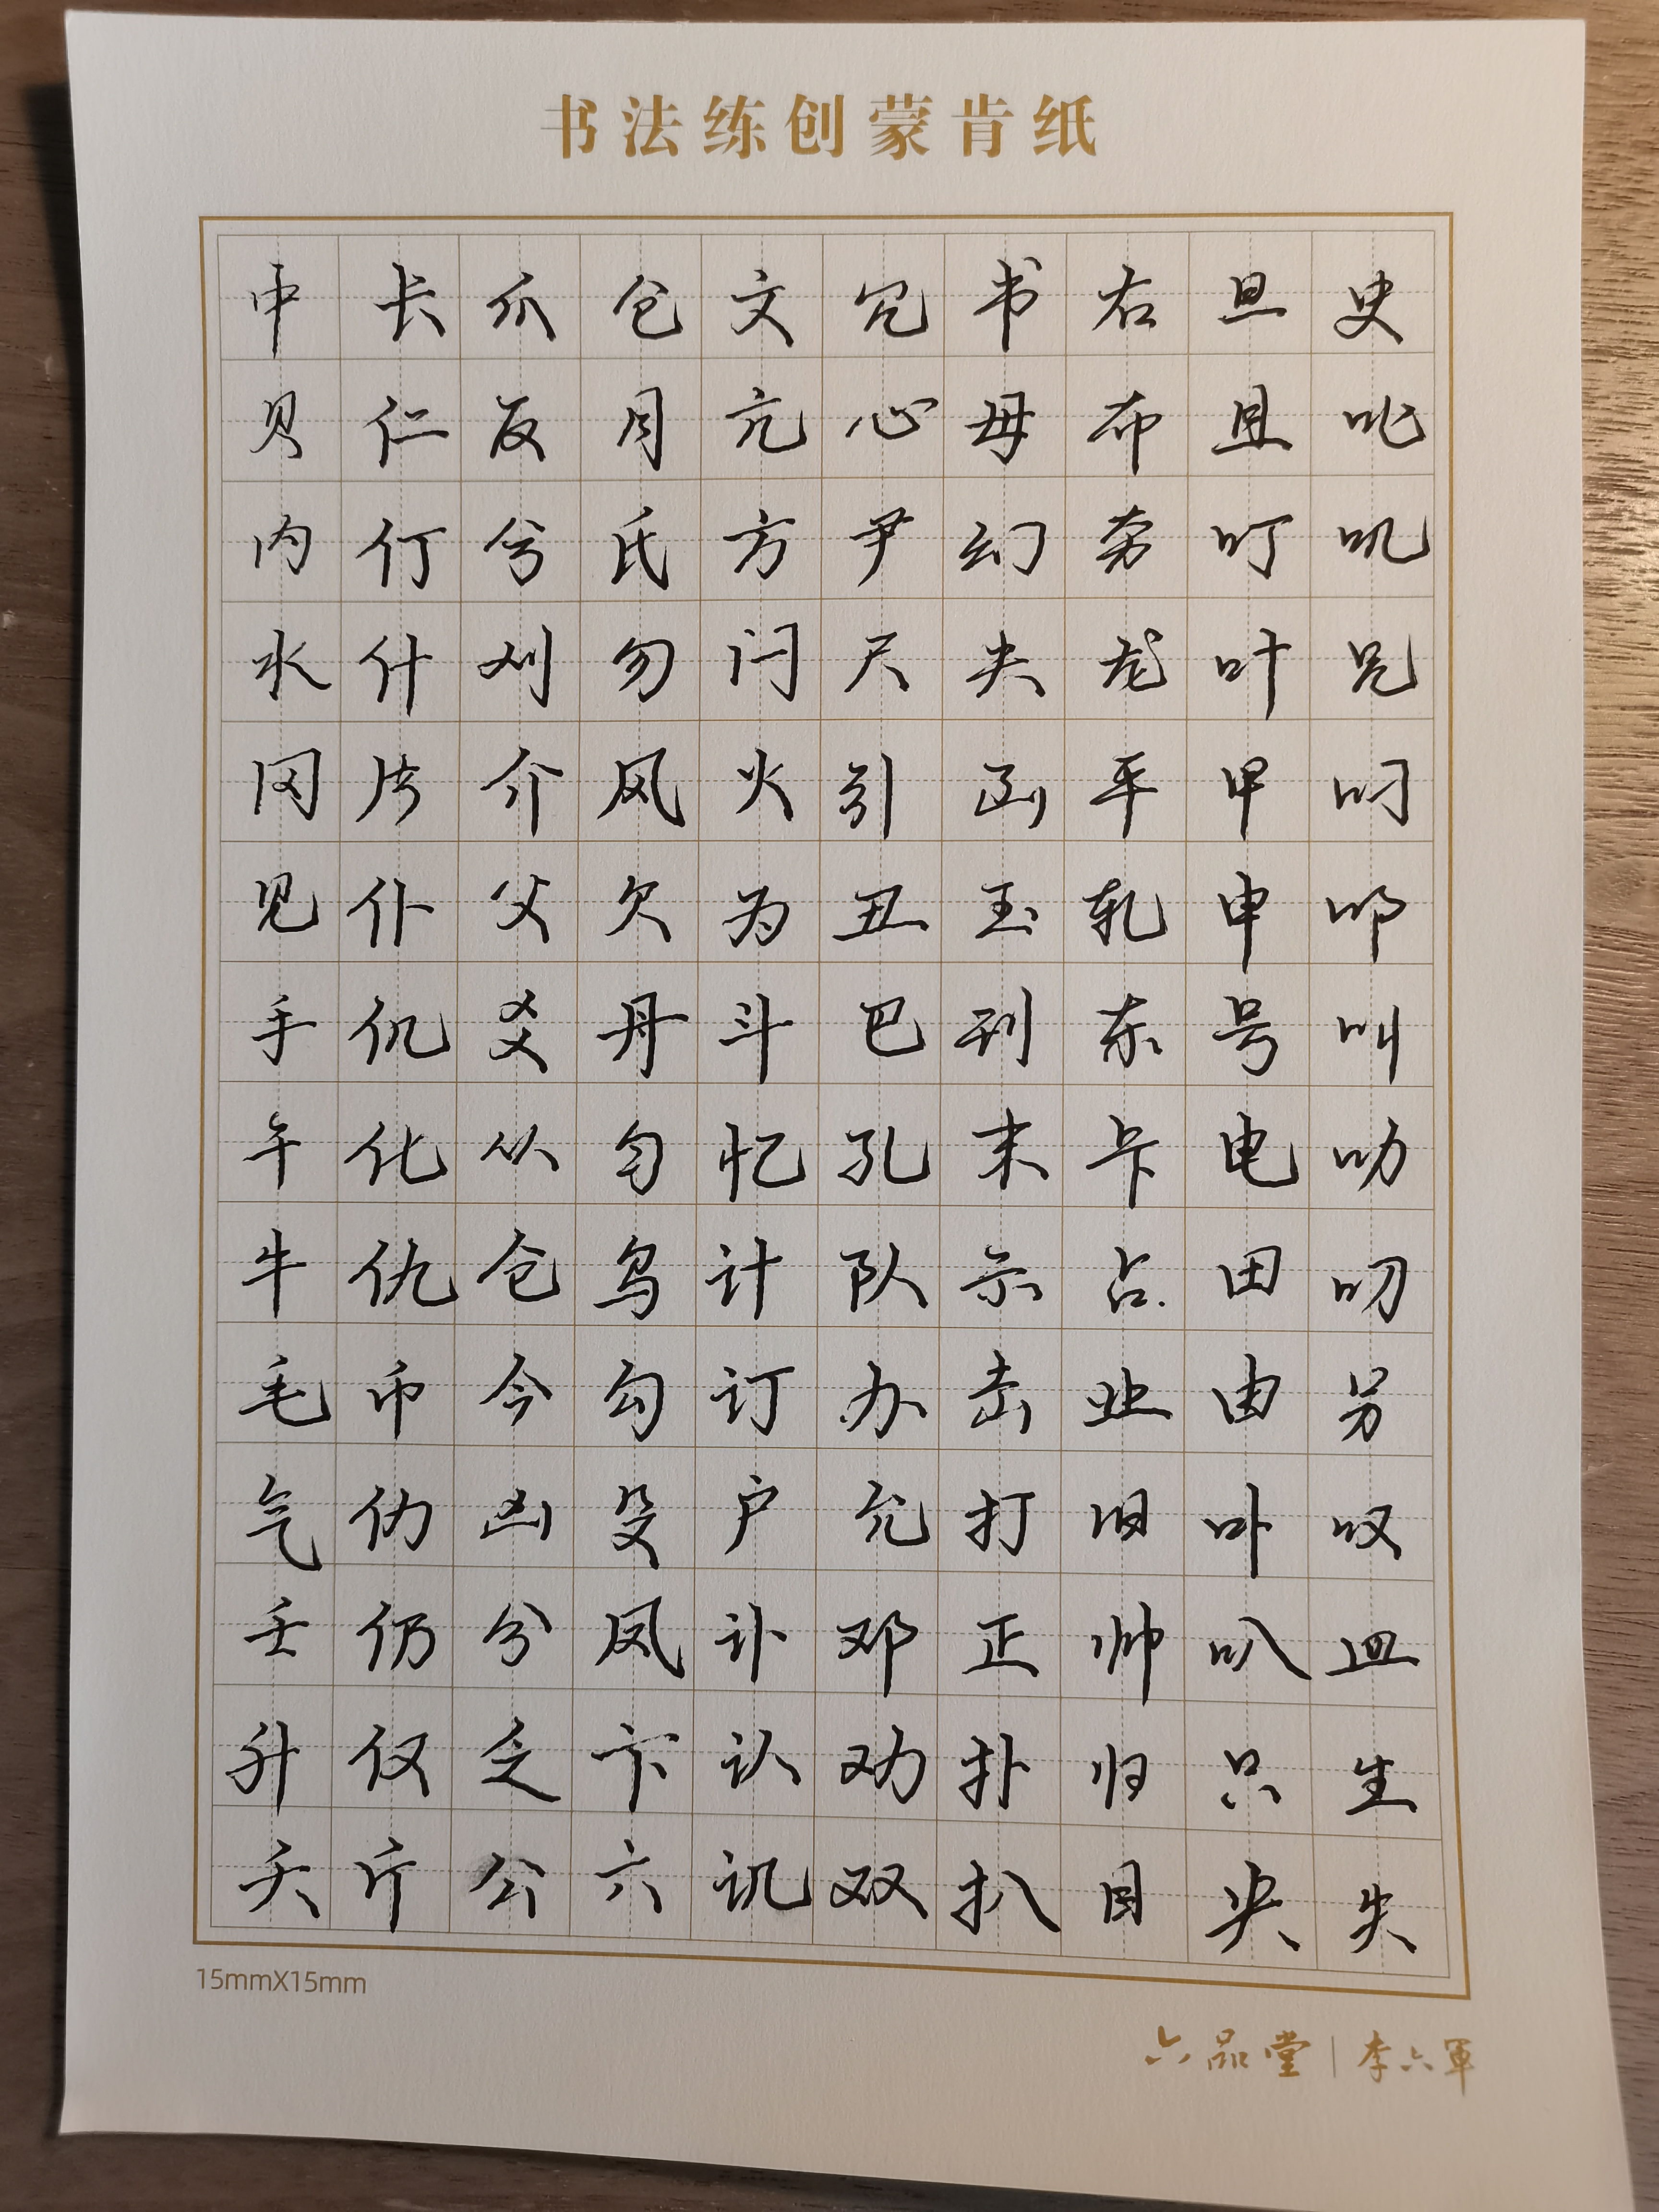 书法练创蒙肯纸
中贝内水冈见手午牛毛气壬升夭
长仁仃什片仆仉化仇币仂仍仅斤
爪反兮刈介父爻从仑今凶分乏公
仓月氏勿风欠丹匀乌勾殳凤卞六
文亢方闩火为斗忆计订户讣认讥
冗心尹尺引丑巴孔队办允邓劝双
书毋幻玉刊末示击打正扑扒
右布夯龙平轧东卡占业旧帅归目
旦且叮叶甲申号电田由卟叭只央
史叱叽兄叼叩叫叻叨另叹皿生失
15mmX15mm
六品堂｜李六軍